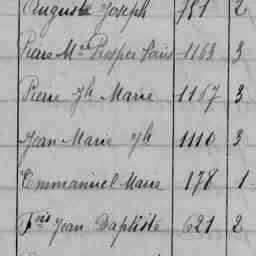 Auguste Joseph 751 2
Pierre Mie Prosper Louis 1163 3
Pierre Jh Marie 1157 3
Jean Marie Jh 1110 3
Emmanuel Marie 178 1
Fois Jean Baptiste 621 2